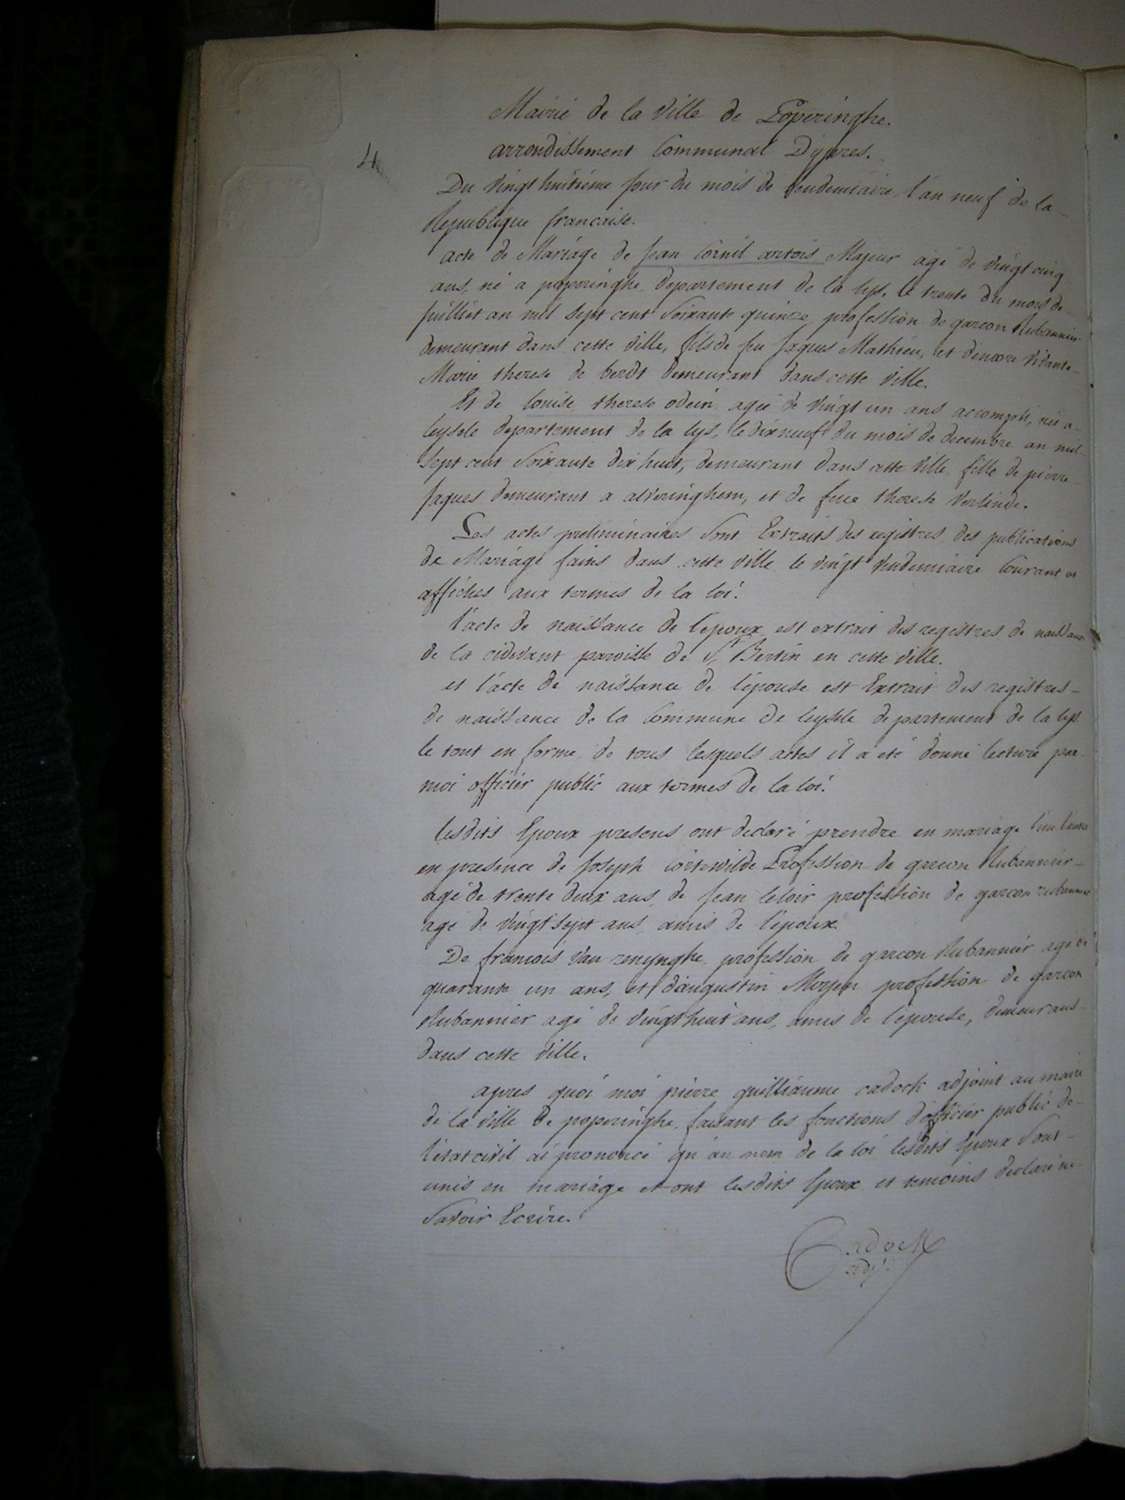 4
Mairie de la Ville de Poperinghe.
arrondissement Communal D'ypres.
Du Vingt huitiéme jour du mois de Vendemiaire, l'an neuf de la
Republique francaise.
acte de Mariage de Jean Cornil artois Majeur agé de vingt cinq
ans, né a poperinghe departement de la lys, le trente du mois de
Juilliet an mil sept cent soixante quinze profession de garcon Rubannier
demeurant dans cette ville, fils de feu Jaques Mathieu, et d'encore Vivante
Marie therese de berdt demeurant dans cette ville.
Et de louise therese odein agée de vingt un ans accompli, née a
leysele departement de la lys, le dix neuf du mois de decembre an mil
sept cent soixante dix huit, demeurant dans cette ville, fille de pierre
Jaques demeurant a alveringhem, et de feue therese Verlinde.
Les actes preliminaires sont Extraits des registres des publications
de Mariage faits dans cette ville le vingt Vendemiaire Courant et
affichés aux termes de la loi.
l'acte de naissance de l'epoux est extrait des registres de naissance
de la cidevant paroisse de St Bertin en cette ville.
et l'acte de naissance de l'épouse est Extrait des registres
de naissance de la Commune de leysele departement de la lys
le tout en forme, de tous lesquels actes il a eté donné lecture par
moi officier public aux termes de la loi.
lesdits Epoux presens ont declaré prendre en mariage l'un l'autre
en presence de Joseph Profession de garcon Rubannier
agé de trente deux ans, de Jean leloir profession de garcon rubannier
agé de vingt sept ans amis de l'époux.
De francois Van renynghe profession de garcon Rubannier agé de
quarante un ans, et d'augustin profession de garcon
Rubannier agé de vingt huit ans, amis de l'épouse, demeurans
dans cette ville.
apres quoi moi pierre guilliaume cadock adjoint au maire
de la ville de poperinghe, faisant les fonctions d'officier public de
l'état civil ai prononcé qu'au nom de la loi lesdits Epoux sont
unis en mariage et ont lesdits Epoux et temoins declaré ne
savoir Ecrire.
Cadock
adjt